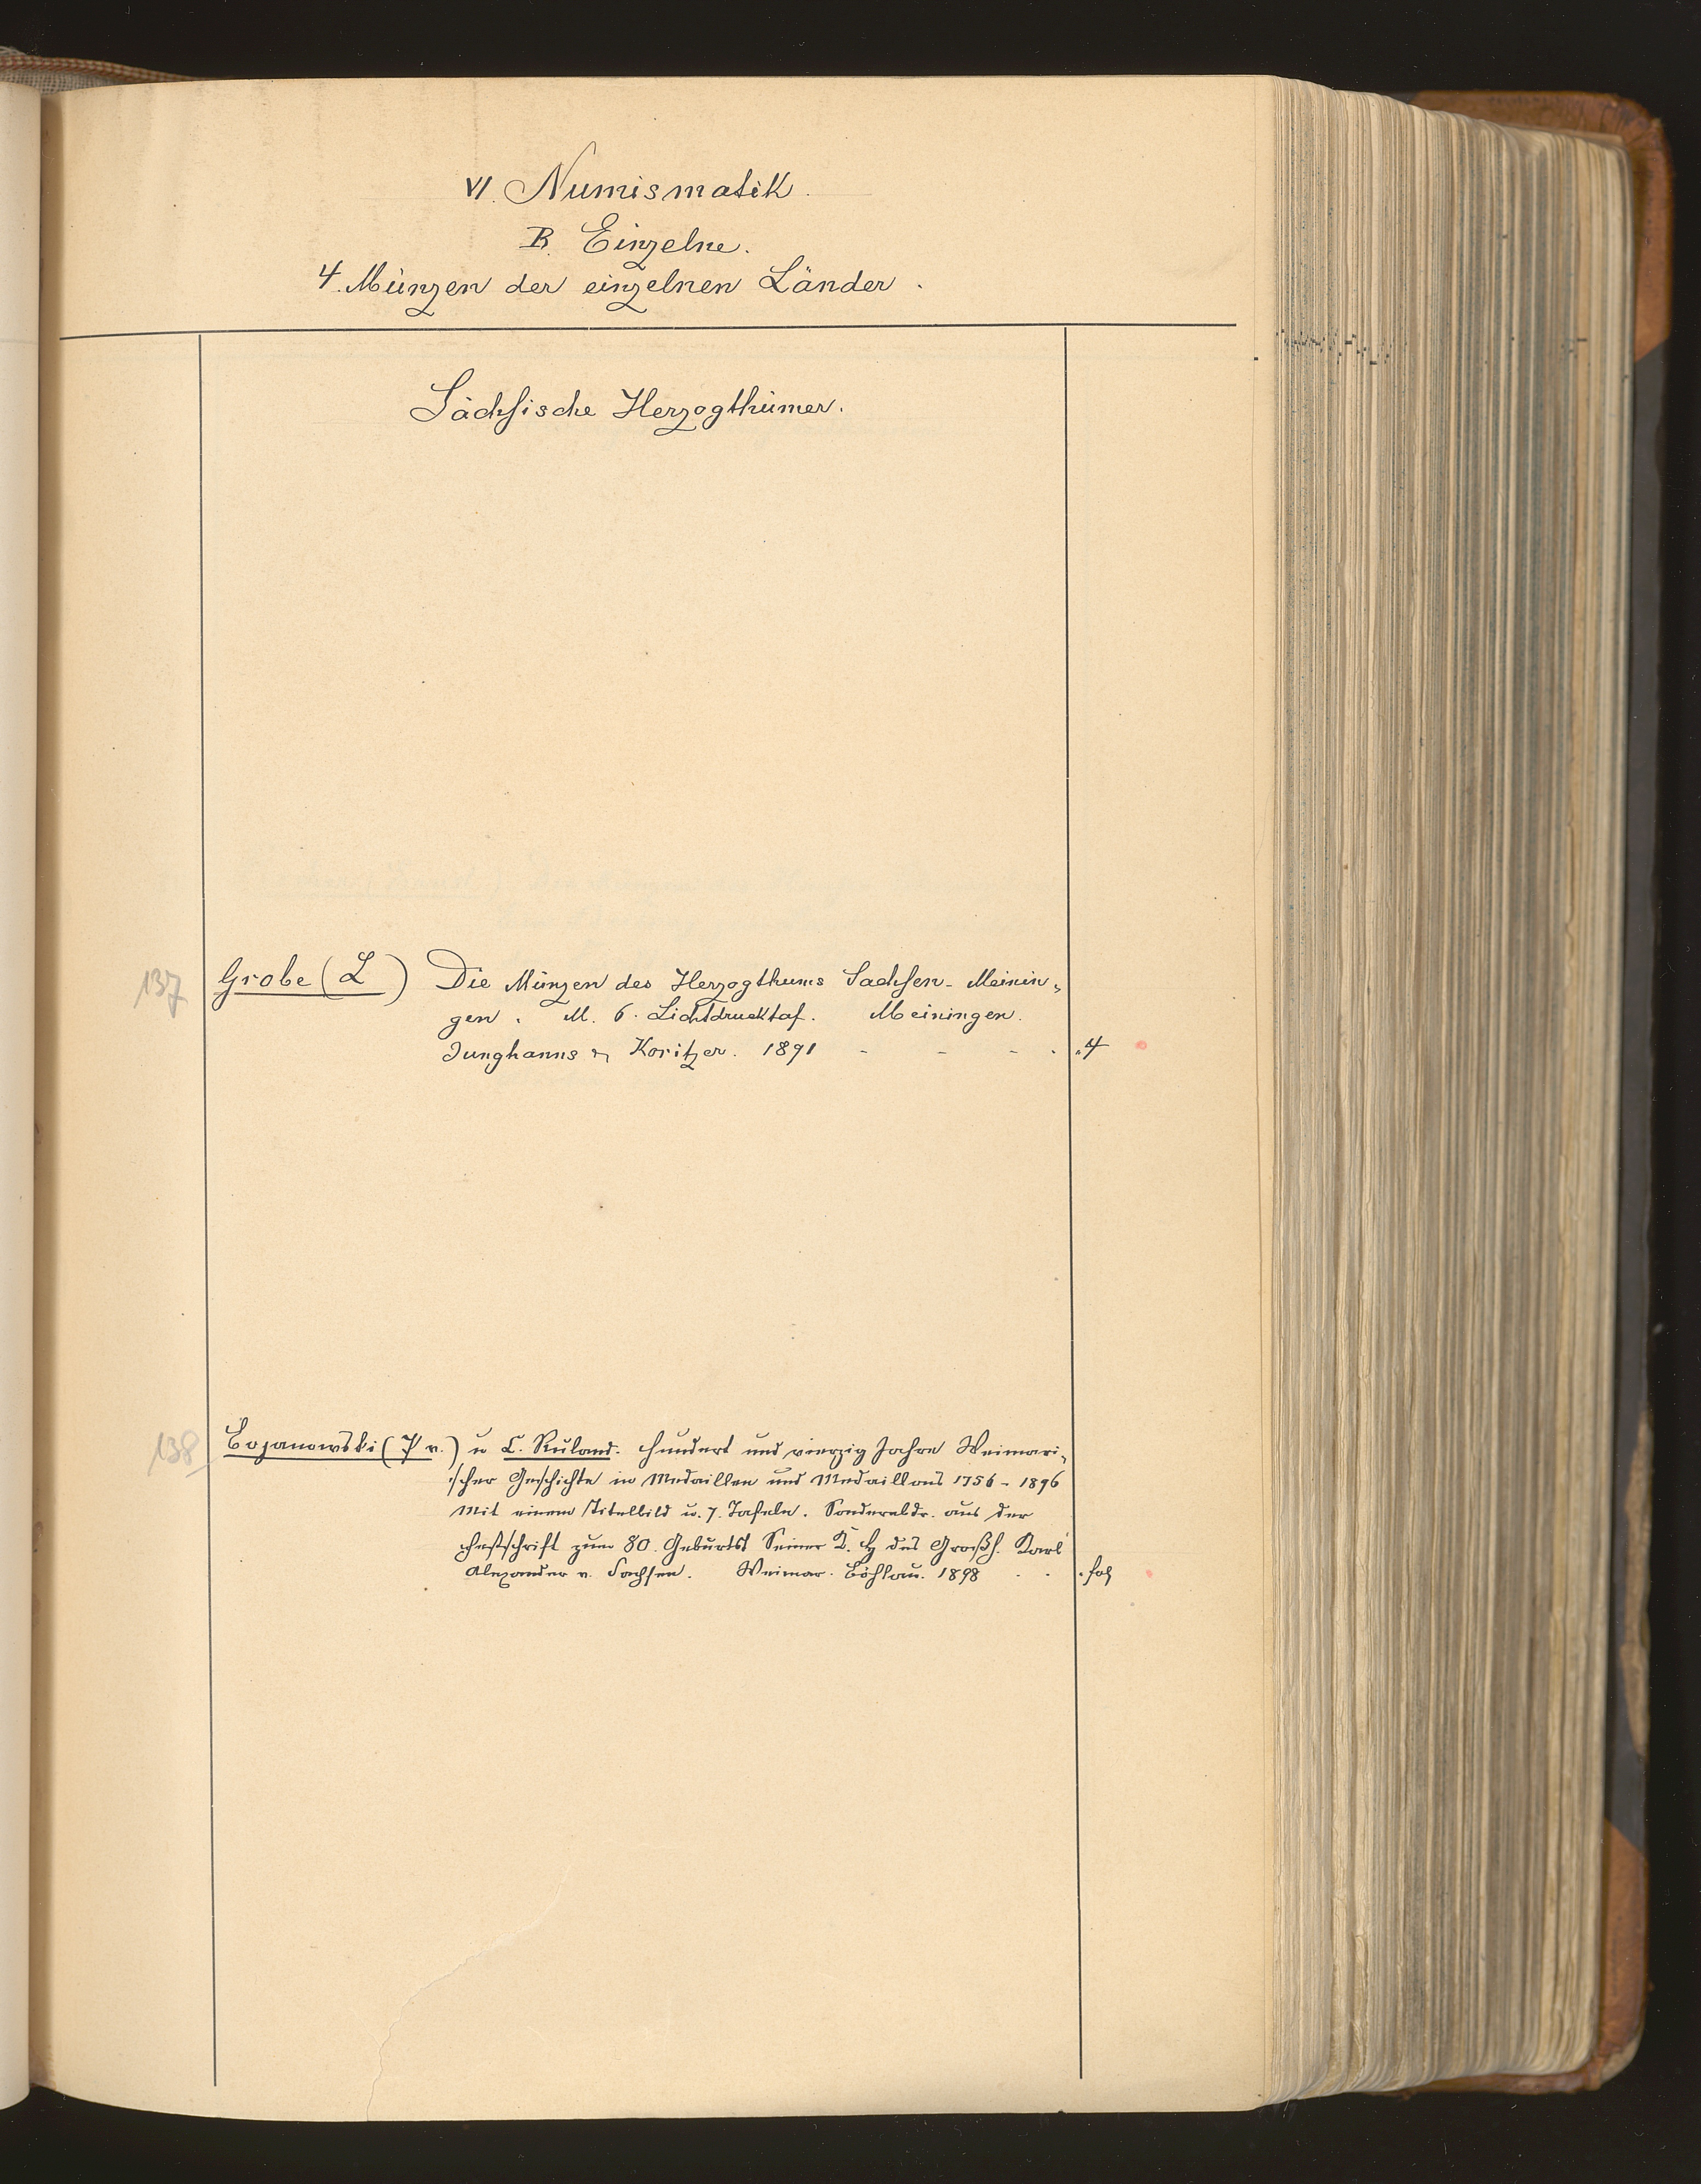 VI. Numismatik.
B. Einzelne.
4. Münzen der einzelnen Länder.
Sächsische Herzogthümer.
137 Grobe (L) Die Münzen des Herzogthums Sachsen-Meinin-
gen. M. 6. Lichtdrucktaf. Meiningen.
Junghanns & Koritzer. 1891 - - - . . 4
138 Bojanowski (P v.) u C. Ruland. Hundert und vierzig Jahre Weimari-
scher Geschichte in Medaillen und Medaillons 1756-1896
Mit einem Titelbild u. 7. Tafeln. Sonderabdr. aus der
Festschrift zum 80. Geburtst Seiner K. H des Großh. Karl
Alexander v. Sachsen. Weimar. Böhlau. 1898 . . . fol